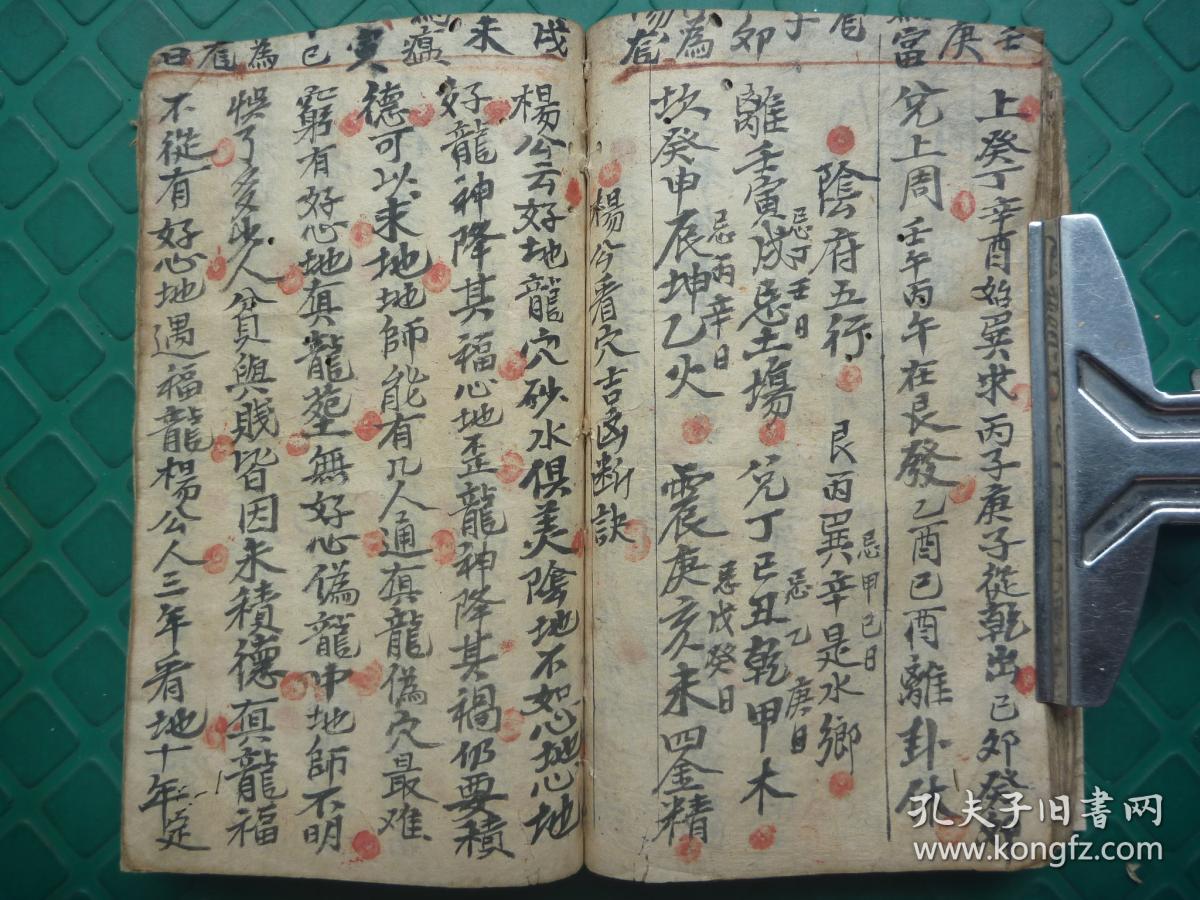 上癸丁辛酉始巽求丙子庚子從乾出己卯癸
兌上周壬午丙午在艮發乙酉己酉離卦
陰府五行 艮丙巽辛是水鄉
忌甲己日
離壬寅戌忌土塲 兌丁巳丑乾甲木
忌丁壬日 忌乙庚日
坎癸申辰坤乙火 震庚亥未四金精
忌丙辛日 忌戊癸日
楊公看穴吉凶斷訣
楊公云好地龍穴砂水俱美陰地不如心地心地
好龍神降其福心地歪龍神降其禍仍要積
德可以求地地師能有几人通真龍偽穴最难
窮有好心地真龍塟無好心偽龍中地師不明
悞了多少人貧與賤皆因未積德真龍福
不從有好心地遇福龍楊公人三年看地十年定
壬庚富
卯子為
戌未瘟寅巳為
孔夫子旧书网
www.kongfz.com